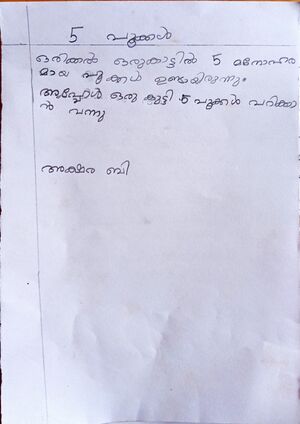 5 പൂക്കൾ
ഒരിക്കൽ ഒരുകാട്ടിൽ 5 മനോഹര
മായ പൂക്കൾ ഉണ്ടായിരുന്നു.
അപ്പോൾ ഒരു കുട്ടി 5 പൂക്കൾ പറിക്കാ
ൻ വന്നു
അക്ഷര ബി